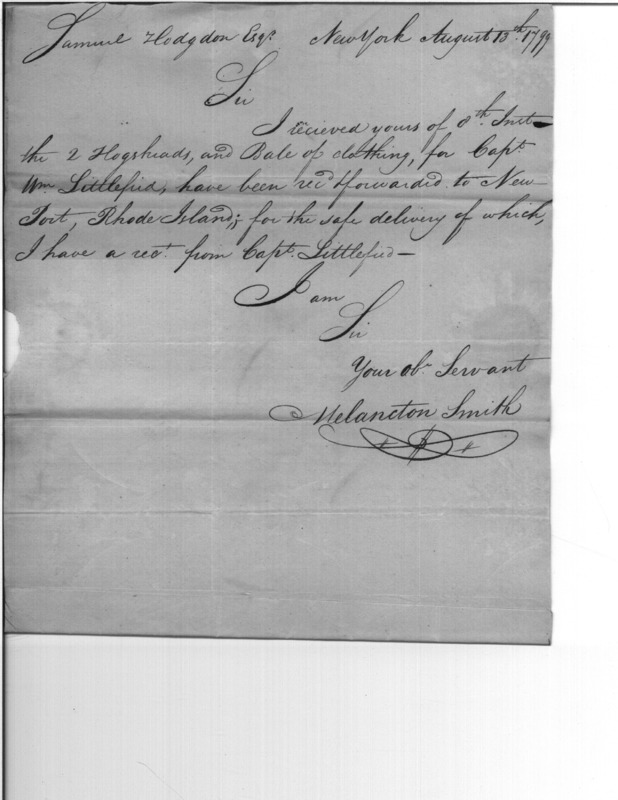 Samuel Hodgdon Esqr. New York August 13th. 1799
Sir
I recieved yours of 8th. Inst—
the 2 Hogsheads, and Bale of clothing, for Capt.
Wm Littlefied, have been recd & forwarded to New-
Port, Rhode Island; for the safe delivery of which,
I have a rect. from Capt. Littlefied—
I am
Sir
Your obt. Servant
Melancton Smith